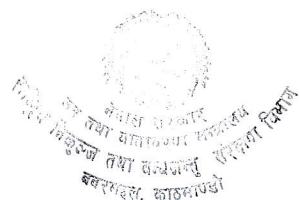 नेपाल सरकार
वन तथा वातावरण मन्त्रालय
राष्ट्रिय निकुञ्ज तथा वन्यजन्तु संरक्षण विभाग
बबरमहल, काठमाण्डौ